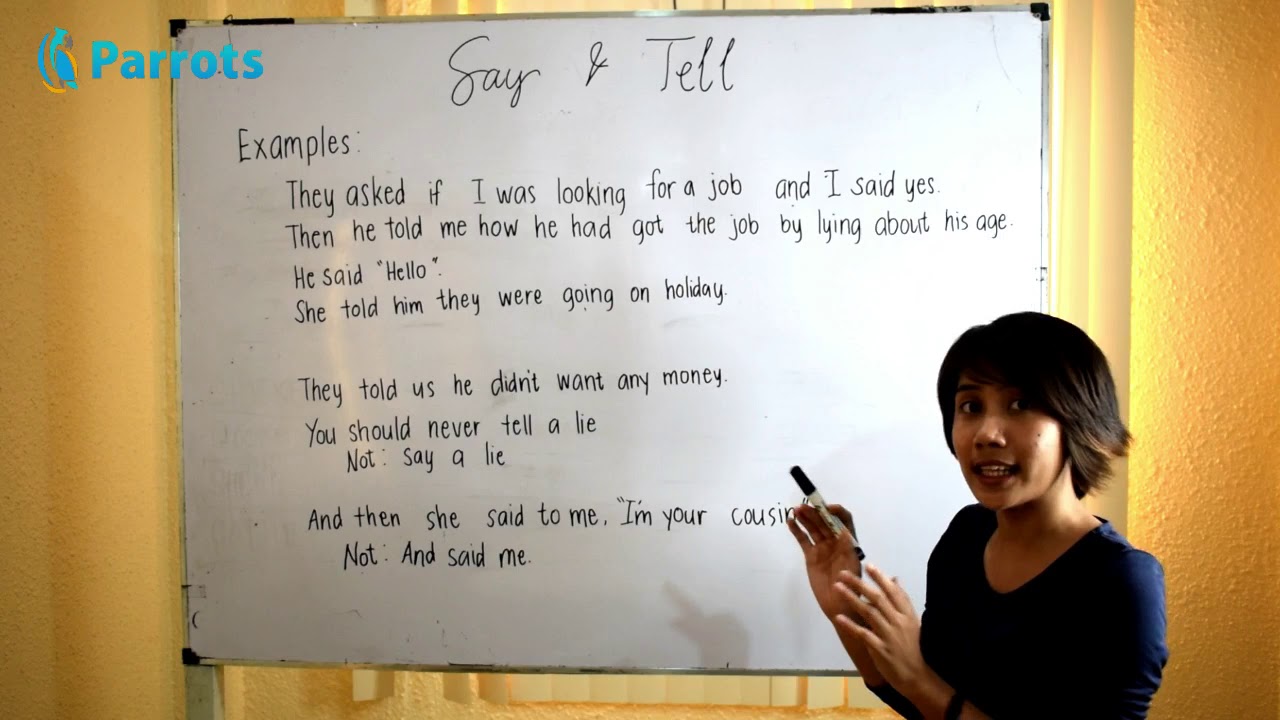 Parrots
Say & Tell
Examples:
They asked if I was looking for a job and I said yes.
Then he told me how he had got the job by lying about his age.
He said "Hello".
She told him they were going on holiday.
They told us he didn't want any money.
You should never tell a lie
Not: say a lie
And then she said to me, "I'm your cousin"
Not: And said me.